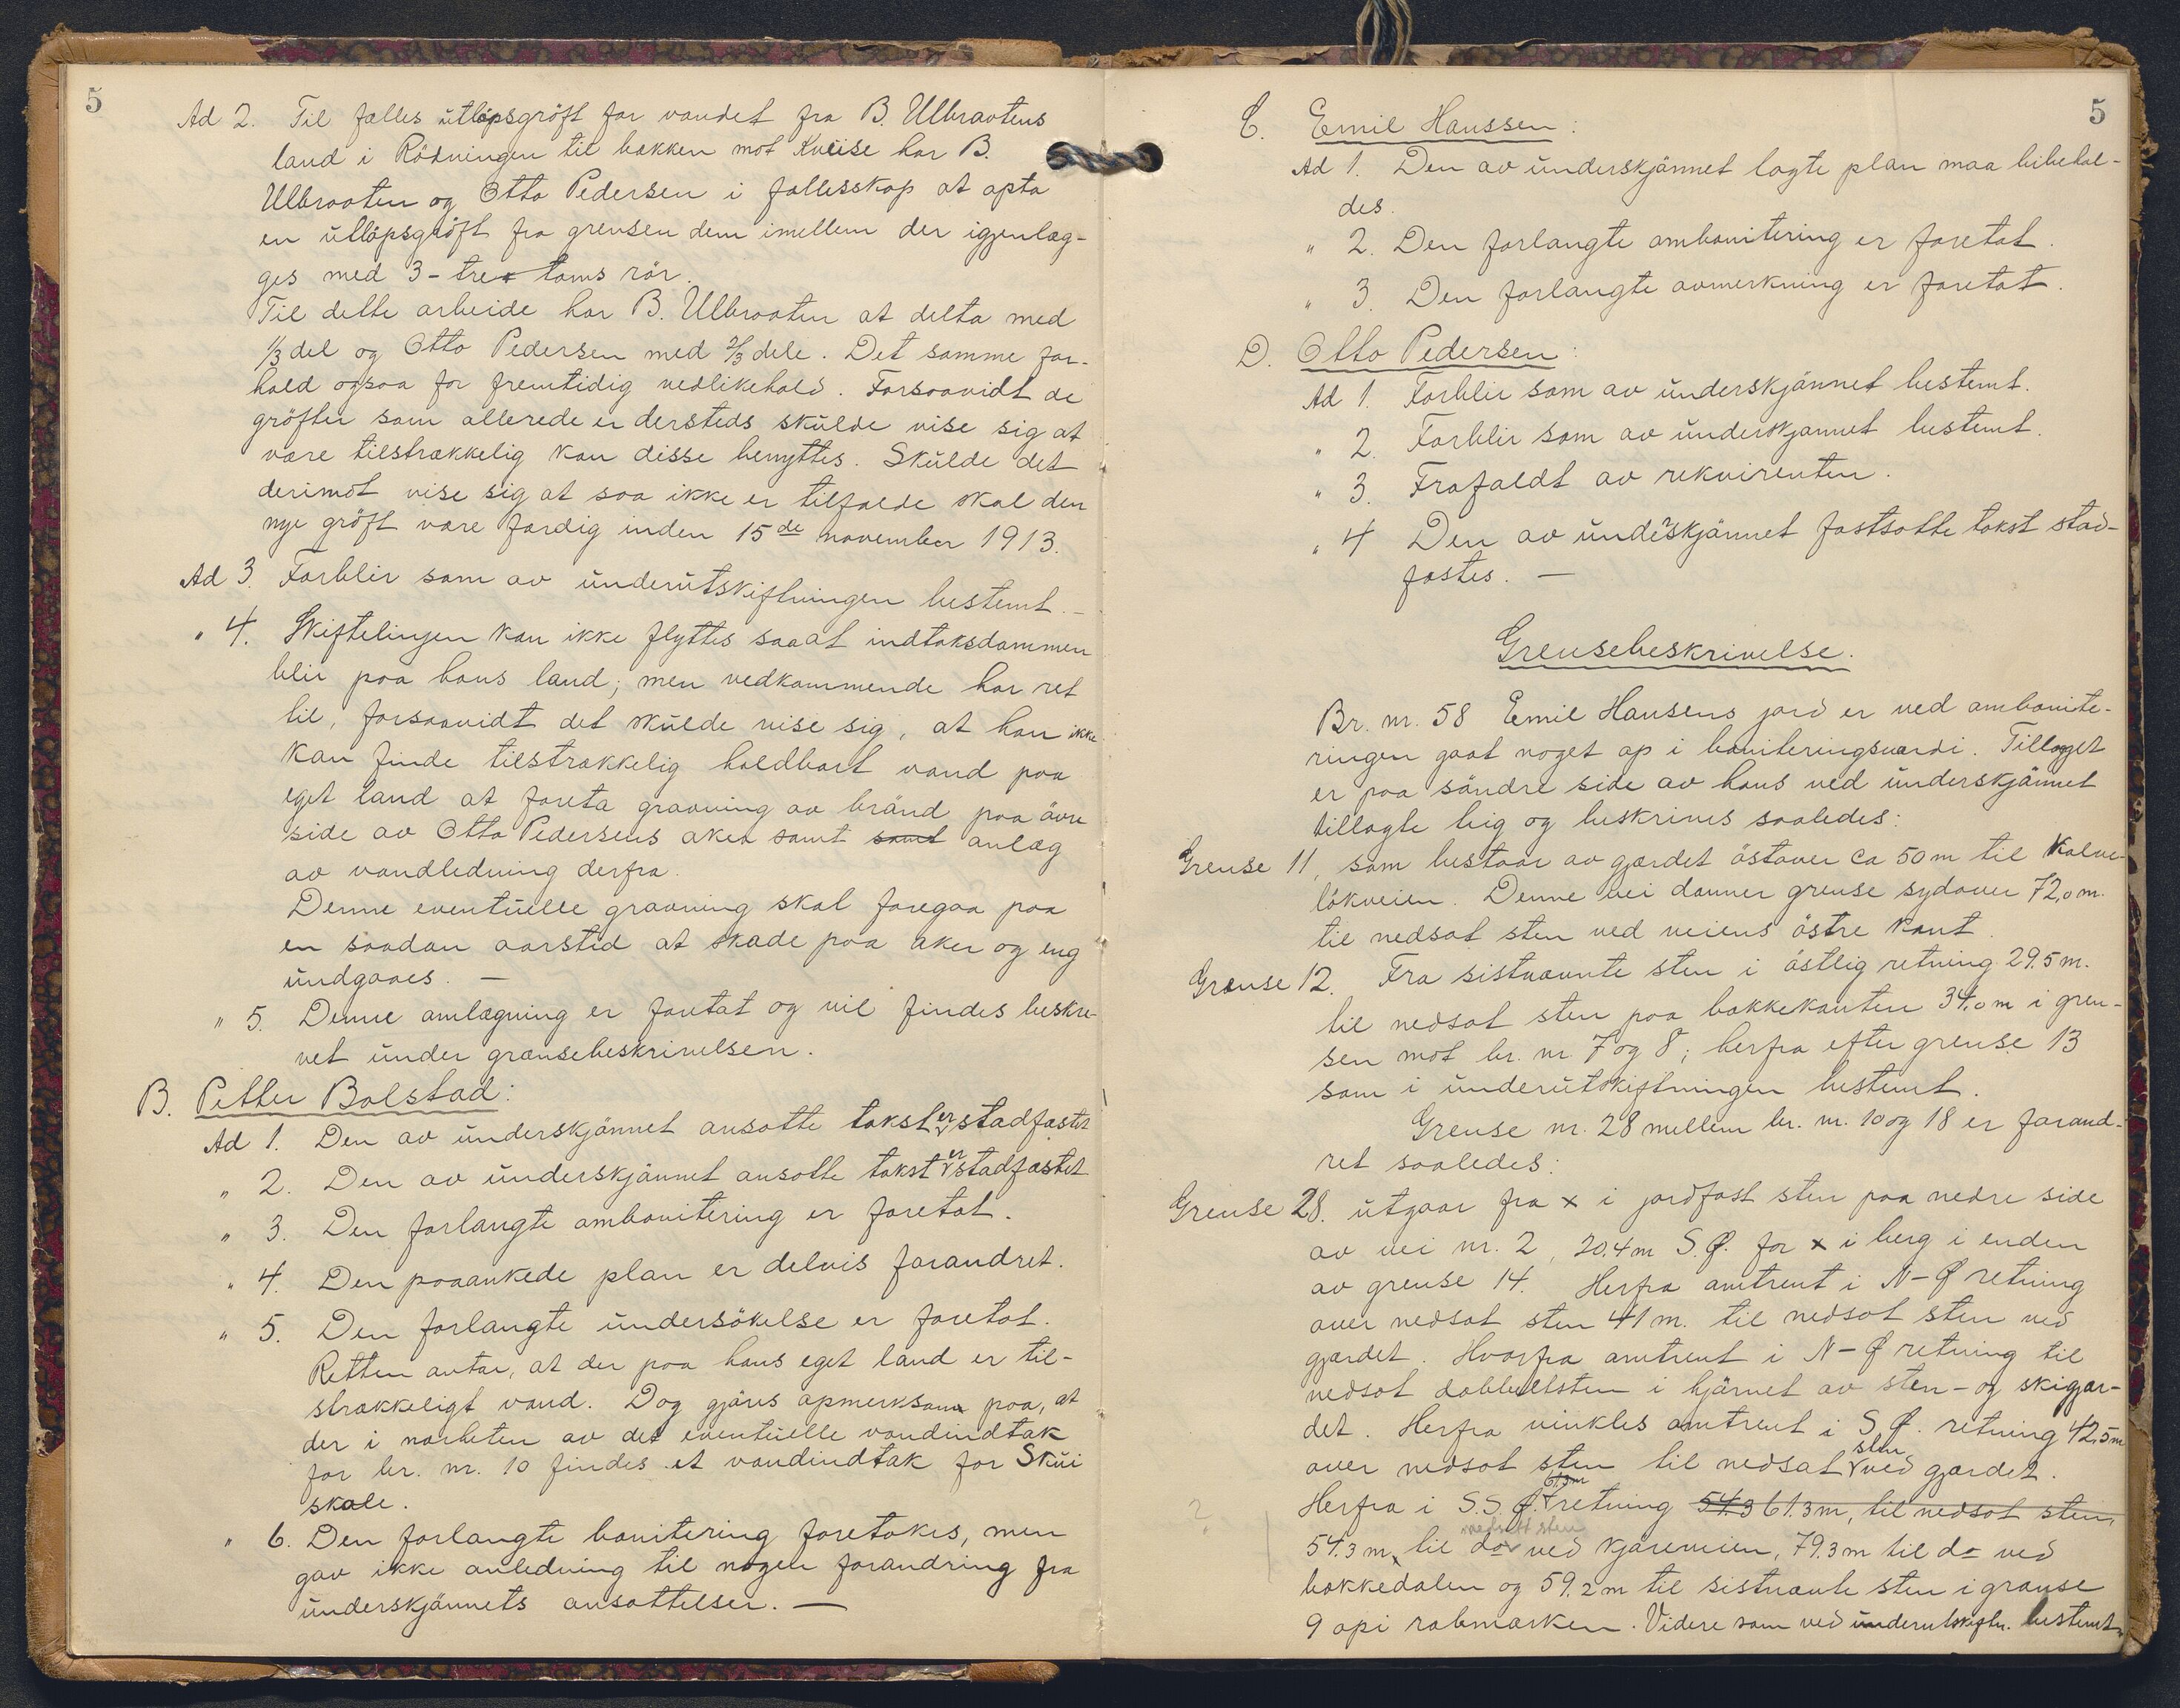 5
Ad 2. Til fælles utløpsgrøft for vandet fra B. Ulbraatens
land i Rödningen til bækken mot Kveise har B.
Ulbraaten og Otto Pedersen i fællesskap at opta
en utlöpsgröft fra grensen dem imellem der igjenlæg-
ges med 3-tre toms rör.
Til dette arbeide har B. Ulbraaten at delta med
1/3 del og Otto Pedersen med 2/3 dele. Det samme for-
hold ogsaa for fremtidig vedlikehold. Forsaavidt de
gröfter som allerede er dersteds skulde vise sig at
være tilstrækkelig kan disse benyttes. Skulde det
derimot vise sig at saa ikke er tilfælde skal den
nye gröft være færdig inden 15de november 1913.
Ad 3. Forblir som av underutskiftningen bestemt. —
" 4. Skiftelinjen kan ikke flyttes saaat indtaksdammen
blir paa hans land; men vedkommende har ret
til, forsaavidt det skulde vise sig, at han ikke
kan finde tilstrækkelig holdbart vand paa
eget land at foreta gravning av brönd paa övre
side av Otto Pedersens aker samt samt anlæg
av vandledning derfra.
Denne eventuelle gravning skal foregaa paa
en saadan aarstid at skade paa aker og eng
undgaaes. —
" 5. Denne omlægning er foretat og vil findes beskre-
vet under grænsebeskrivelsen.
B. Petter Bolstad:
Ad 1. Den av underskjönnet ansatte takst er stadfæstet
" 2. Den av underskjönnet ansatte takst er stadfæstet
" 3. Den forlangte ombonitering er foretat.
" 4. Den paaankede plan er delvis forandret.
" 5. Den forlangte undersökelse er foretat.
Retten antar, at der paa hans eget land er til-
strækkeligt vand. Dog gjöres opmerksom paa, at
der i nærheten av det eventuelle vandindtak
for br. nr. 10 findes et vandindtak for Skui
skole.
" 6. Den forlangte bonitering foretokes, men
gav ikke anledning til nogen forandring fra
underskjönnets ansættelser. —
5
C. Emil Hanssen:
Ad 1. Den av underskjönnet lagte plan maa bibehol-
des.
" 2. Den forlangte ombonitering er foretat.
" 3. Den forlangte avmerkning er foretat.
D. Otto Pedersen:
Ad 1. Forblir som av underskjönnet bestemt.
" 2. Forblir som av underskjönnet bestemt.
" 3. Frafaldt av rekvirenten.
" 4 Den av underskjönnet fastsatte takst stad-
fæstes. —
Grensebeskrivelse.
Br. nr. 58 Emil Hansens jord er ved ombonite-
ringen gaat noget op i boniteringsværdi. Tillægget
er paa söndre side av hans ved underskjönnet
tillagte teig og beskrives saaledes:
Grense 11, som bestaar av gjærdet östover ca 50 m til Kalve-
lökveien. Denne vei danner grense sydover 72,0 m.
til nedsat sten ved veiens östre kant.
Grense 12. Fra sistnævnte sten i östlig retning 29.5 m.
til nedsat sten paa bakkekanten 34.0 m i gren-
sen mot br. nr 7 og 8; herfra efter grense 13
som i underutskiftningen bestemt.
Grense nr. 28 mellem br. nr. 10 og 18 er forand-
ret saaledes:
Grense 28. utgaar fra x i jordfast sten paa nedre side
av vei nr. 2, 20.4 m S.Ø. for x i berg i enden
av grense 14. Herfra omtrent i N-Ø retning
over nedsat sten 41 m. til nedsat sten ved
gjærdet. Hvorfra omtrent i N-Ø retning til
nedsat dobbeltsten i hjörnet av sten- og skigjær-
det. Herfra vinkles omtrent i S.Ø. retning 42,5 m
over nedsat sten til nedsat sten ved gjærdet.
Herfra i S.S.Ø. 61.3m retning 54.3 61.3 m, til nedsat sten,
54.3 m, til do nedsatt sten ved kjöreveien, 79.3 m til do ved
bækkedalen og 59.2 m til sistnævnte sten i grænse
9 op i rabmarken. Videre som ved underutskiftn. bestemt.
?